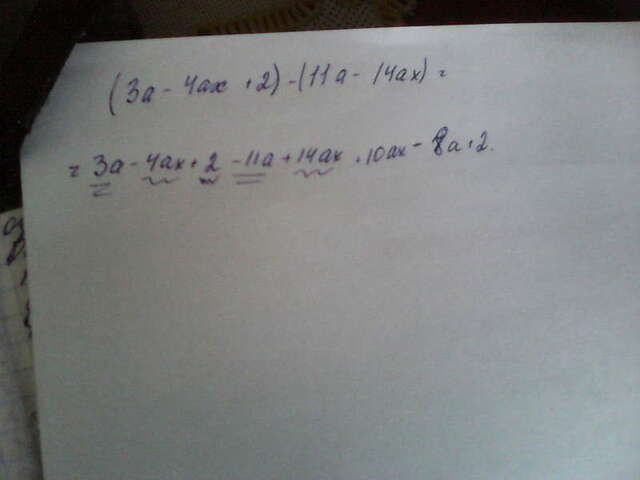 (3a - 4ax + 2) - (11a - 14ax) =
= 3a - 4ax + 2 - 11a + 14ax = 10ax - 8a + 2.